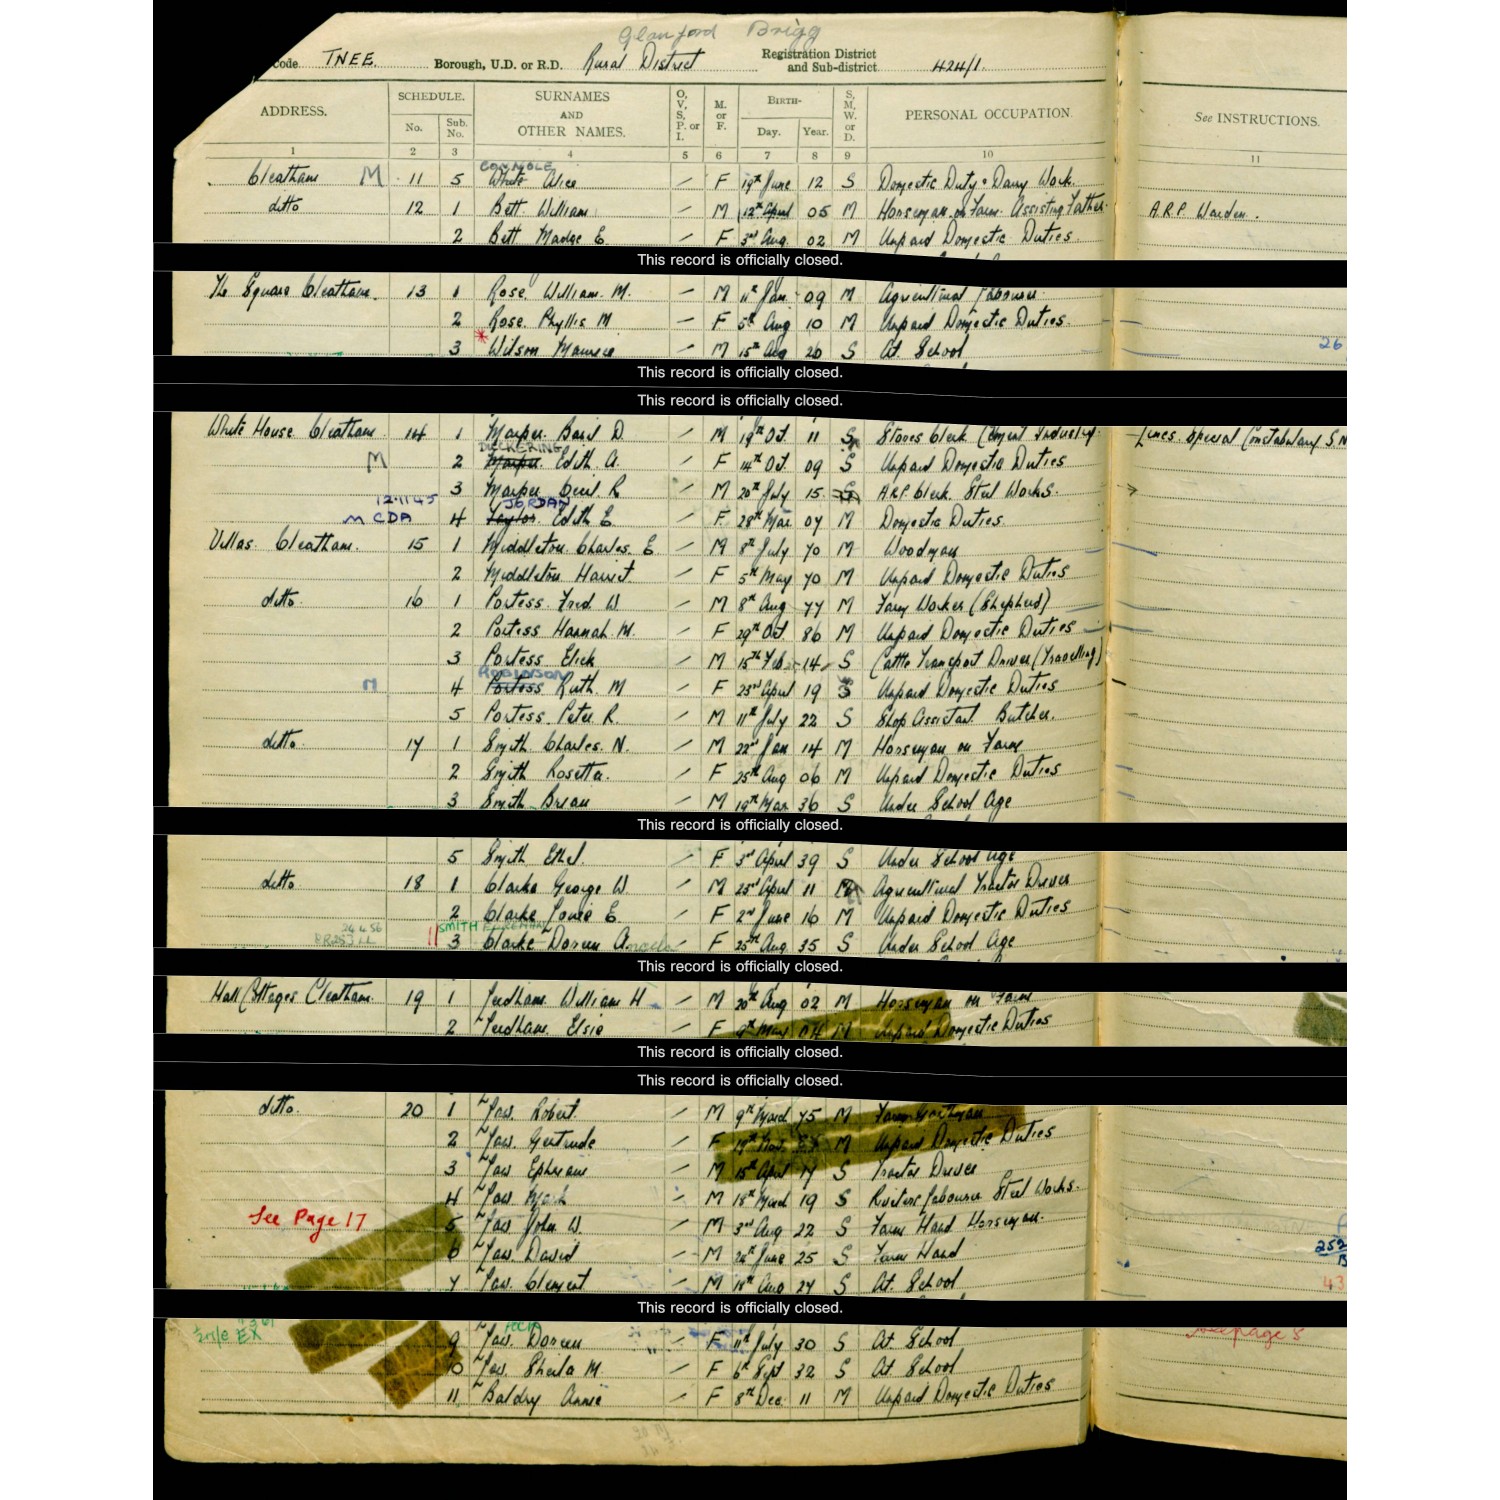 Glanford Brigg
Code TNEE. Borough, U.D. or R.D. Rural District Registration District and Sub-district 424/1.
ADDRESS. SCHEDULE. No. Sub. No. SURNAMES AND OTHER NAMES. O, V, S, P, or I. M. or F. BIRTH- Day. Year. S, M, W, or D. PERSONAL OCCUPATION. See INSTRUCTIONS.
1 2 3 4 5 6 7 8 9 10 11
CONNOLE
Cleatham M 11 5 White Alice — F 19th June 12 S Domestic Duty & Dairy Work.
ditto 12 1 Bett. William — M 12th April 05 M Horseman on Farm. Assisting Father. A.R.P. Warden.
2 Bett Madge E. — F 3rd Aug 02 M Unpaid Domestic Duties.
This record is officially closed.
The Square Cleatham. 13 1 Rose. William. M. — M 11th Jan 09 M Agricultural Labourer
2 Rose. Phyllis M — F 5th Aug 10 M Unpaid Domestic Duties.
3 Wilson Maurice — M 15th Aug 26 S At School 26
This record is officially closed.
This record is officially closed.
White House Cleatham 14 1 Marper Basil D. — M 19th Oct. 11 S Stores Clerk (Cement Industry). Lincs. Special Constabulary
DICKERING
M 2 Marper Edith A. — F 14th Oct. 09 S Unpaid Domestic Duties
3 Marper Cecil R — M 20th July 15 S A.R.P. Clerk. Steel Works.
12.11.45 JORDAN
M CDA 4 Taylor Edith E — F 28th Mar 07 M Domestic Duties
Villas. Cleatham. 15 1 Middleton. Charles. E. — M 8th July 70 M Woodman
2 Middleton Harriet. — F 5th May 70 M Unpaid Domestic Duties
ditto. 16 1 Portess. Fred. W. — M 8th Aug 77 M Farm Worker (Shepherd)
2 Portess Hannah. M. — F 29th Oct. 86 M Unpaid Domestic Duties
3 Portess. Elick — M 15th Feb 14 S Cattle Transport Driver (Travelling)
ROBINSON
M 4 Portess Ruth. M — F 23rd April 19 S Unpaid Domestic Duties
5 Portess. Peter R. — M 11th July 22 S Shop Assistant Butcher.
ditto. 17 1 Smith. Charles. N. — M 22nd Jan 14 M Horseman on Farm
2 Smith Rosetta. — F 25th Aug 06 M Unpaid Domestic Duties
3 Smith Brian — M 19th Mar 36 S Under School Age
This record is officially closed.
5 Smith Ethel. — F 3rd April 39 S Under School Age
ditto 18 1 Clarke George W. — M 23rd April 11 M Agricultural Tractor Driver
2 Clarke Louie E. — F 2nd June 16 M Unpaid Domestic Duties
24.4.56 SMITH
3 Clarke Doreen A — F 25th Aug. 35 S Under School Age
This record is officially closed.
Hall Cottages Cleatham. 19 1 Needham. William H — M 20th Aug 02 M Horseman on Farm
2 Needham. Elsie F 9th 04 M Unpaid Domestic Duties
This record is officially closed.
This record is officially closed.
ditto. 20 1 Jaw. Robert. — M 9th March 75 M
2 Jaw. Gertrude — F 19th Nov. M Unpaid Domestic Duties
3 Jaw Ephraim — M 15th April 17 S Tractor Driver
4 Jaw. Mark — M 18th March 19 S Labourer Steel Works.
See Page 17 5 Jaw. John W. — M 3rd Aug 22 S Farm Hand Horseman.
6 Jaw. David — M 24th June 25 S Farm Hand 252
7 Jaw. Clement — M 18th Aug 27 S At School 43
This record is officially closed.
EX 9 Jaw. Doreen — F 11th July 30 S At School See page 8
10 Jaw. Sheila M. — F 6th Sept 32 S At School
11 Baldry Annie — F 8th Dec. 11 M Unpaid Domestic Duties